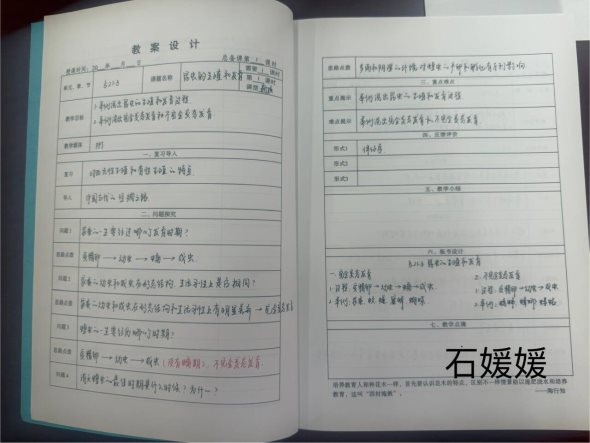 教案设计
总备课第1课时
授课时间：20 年 月 日
单元、章、节 5.2.1.3 课题名称 昆虫的生殖和发育 第1课时
课型 新授
教学目标 1.举例说出昆虫的生殖和发育过程
2.举例说出完全变态发育和不完全变态发育
教学媒体 PPT
一、复习导入
复习 有性生殖和无性生殖的特点
导入
二、问题探究
问题1 家蚕的一生要经过哪几个发育时期？
思路点数 受精卵→幼虫→蛹→成虫
问题2 家蚕的幼虫和成虫在形态结构、生活习性上是否相同？
思路点数 家蚕的幼虫和成虫在形态结构和生活习性上有明显差异→完全变态发育
问题3 蝗虫的一生要经历哪几个时期？
思路点数 受精卵→幼虫→成虫（没有蛹期）不完全变态发育
问题4 消灭蝗虫的最佳时期是什么时候？为什么？
思路点数
三、重点难点
重点提示 举例说出昆虫的生殖和发育过程
难点提示 举例说出完全变态发育和不完全变态发育
四、反馈评价
形式1
形式2
形式3
五、教学小结
六、板书设计
昆虫的生殖和发育
一、完全变态发育
1.过程：受精卵→幼虫→蛹→成虫
2.举例：家蚕
二、不完全变态发育
1.过程：受精卵→幼虫→成虫
2.举例：
七、教学点滴
石媛媛
培养教育人和种花木一样，首先要认识花木的特点，区别不一样情景给以施肥浇水和培养
教育，这叫“因材施教”。
——陶行知